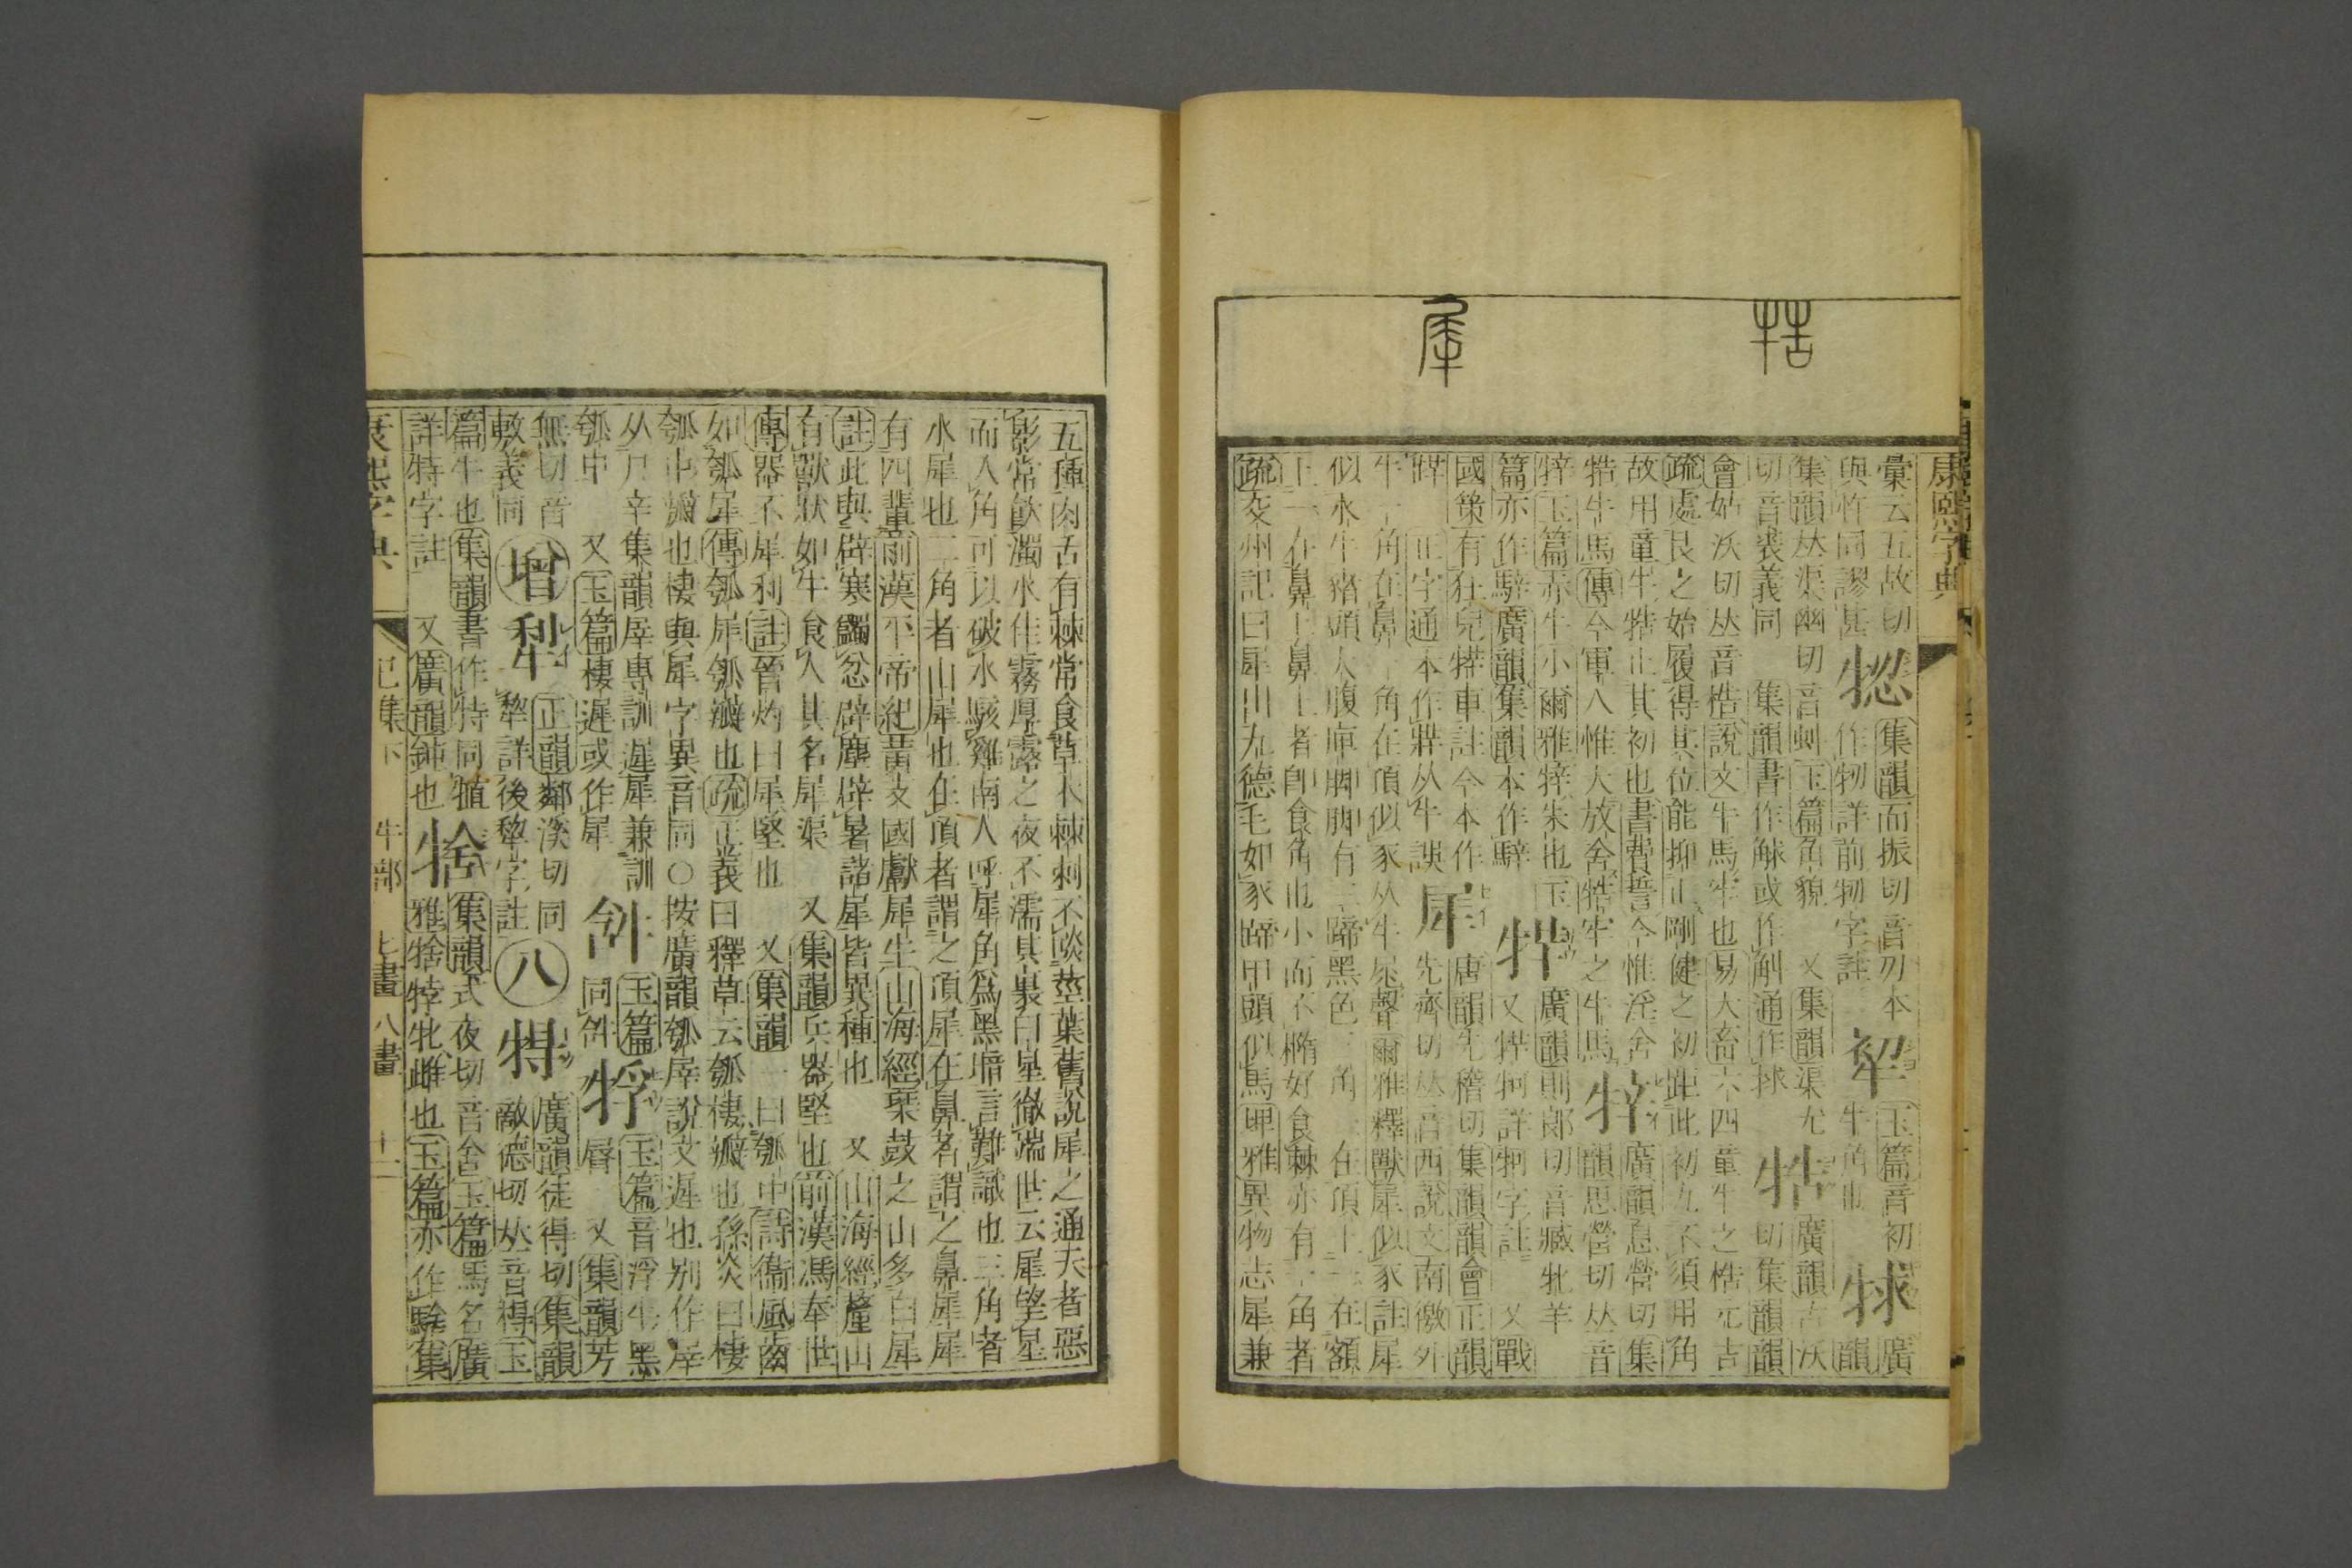 康熙字典
彙云五故切 集韻而振切音刃本 玉篇音初 廣
與牾同謬甚 作牣詳前牣字註 牛角 韻
集韻𠀤渠幽切音虯玉篇角貌 又集韻渠尤 牿 廣韻古沃
切音裘義同 集韻書作觩或作斛通作捄 切集韻韻
會姑沃切𠀤音梏說文牛馬牢也易大畜六四童牛之梏元吉
疏處艮之始履得其位能抑止剛健之初距此初九不須用角
故用童牛牿止其初也書費誓今惟淫舍 廣韻息營切集
牿牛馬傳今軍人惟大放舍牿牢之牛馬 韻思營切𠀤音
玉篇赤牛小爾雅朱也玉 廣韻則郎切音臧牝羊
篇亦作騂廣韻集韻本作騂 又牂牁詳牁字註 又戰
國策有狂兕車註今本作 犀 唐韻先稽切集韻韻會正韻
正字通本作牂从牛誤 先齊切𠀤音西說文南徼外
牛一角在鼻一角在頂似豕从牛尾聲爾雅釋獸犀似豕註犀
似水牛豬頭大腹庳脚脚有三蹄黑色三角一在頂上一在額
上一在鼻上鼻上者卽食角也小而不橢好食棘亦有一角者
疏交州記曰犀出九德毛如豕蹄甲頭似馬埤雅異物志犀兼
五種肉舌有棘常食草木棘刺不啖莖葉舊說犀之通天者惡
影常飮濁水佳霧厚露之夜不濡其裏白星徹端世云犀望星
而入角可以破水駭雞南人呼犀角爲黑暗言難識也三角者
水犀也二角者山犀也在頂者謂之頂犀在鼻者謂之鼻犀犀
有四輩前漢平帝紀黃支國獻犀牛山海經琹鼓之山多白犀
註此與辟寒蠲忿辟塵辟暑諸犀皆異種也 又山海經釐山
有獸狀如牛食人其名犀渠 又集韻兵器堅也前漢馮奉世
傳器不犀利註晉灼曰犀堅也 又集韻一曰瓠中詩衞風齒
如瓠犀傳瓠犀瓠瓣也疏正義曰釋草云瓠棲瓣也孫炎曰棲
瓠中瓣也棲與犀字異音同○按廣韻瓠犀說文遲也別作
从尸辛集韻專訓遲犀兼訓 玉篇 玉篇音浮牛黑
瓠中 又玉篇棲遲或作犀 同 脣 又集韻芳
無切音 增 犂 正韻鄰溪切同 八 特 廣韻徒得切集韻
敷義同 犂詳後犂字註 敵德切𠀤音得玉
篇牛也集韻書作特同犆 捨 集韻式夜切音舍玉篇馬名廣
詳特字註 又廣韻鈍也 雅牸牝雌也玉篇亦作騇集
康熙字典 巳集下 牛部 七畫 八畫 十一